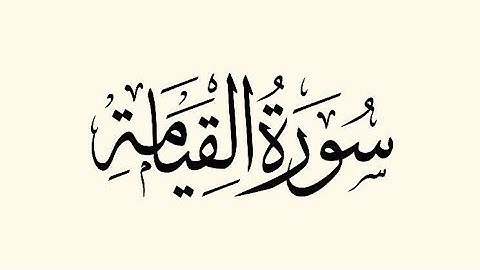 سُورَةُ الْقِيَامَةِ